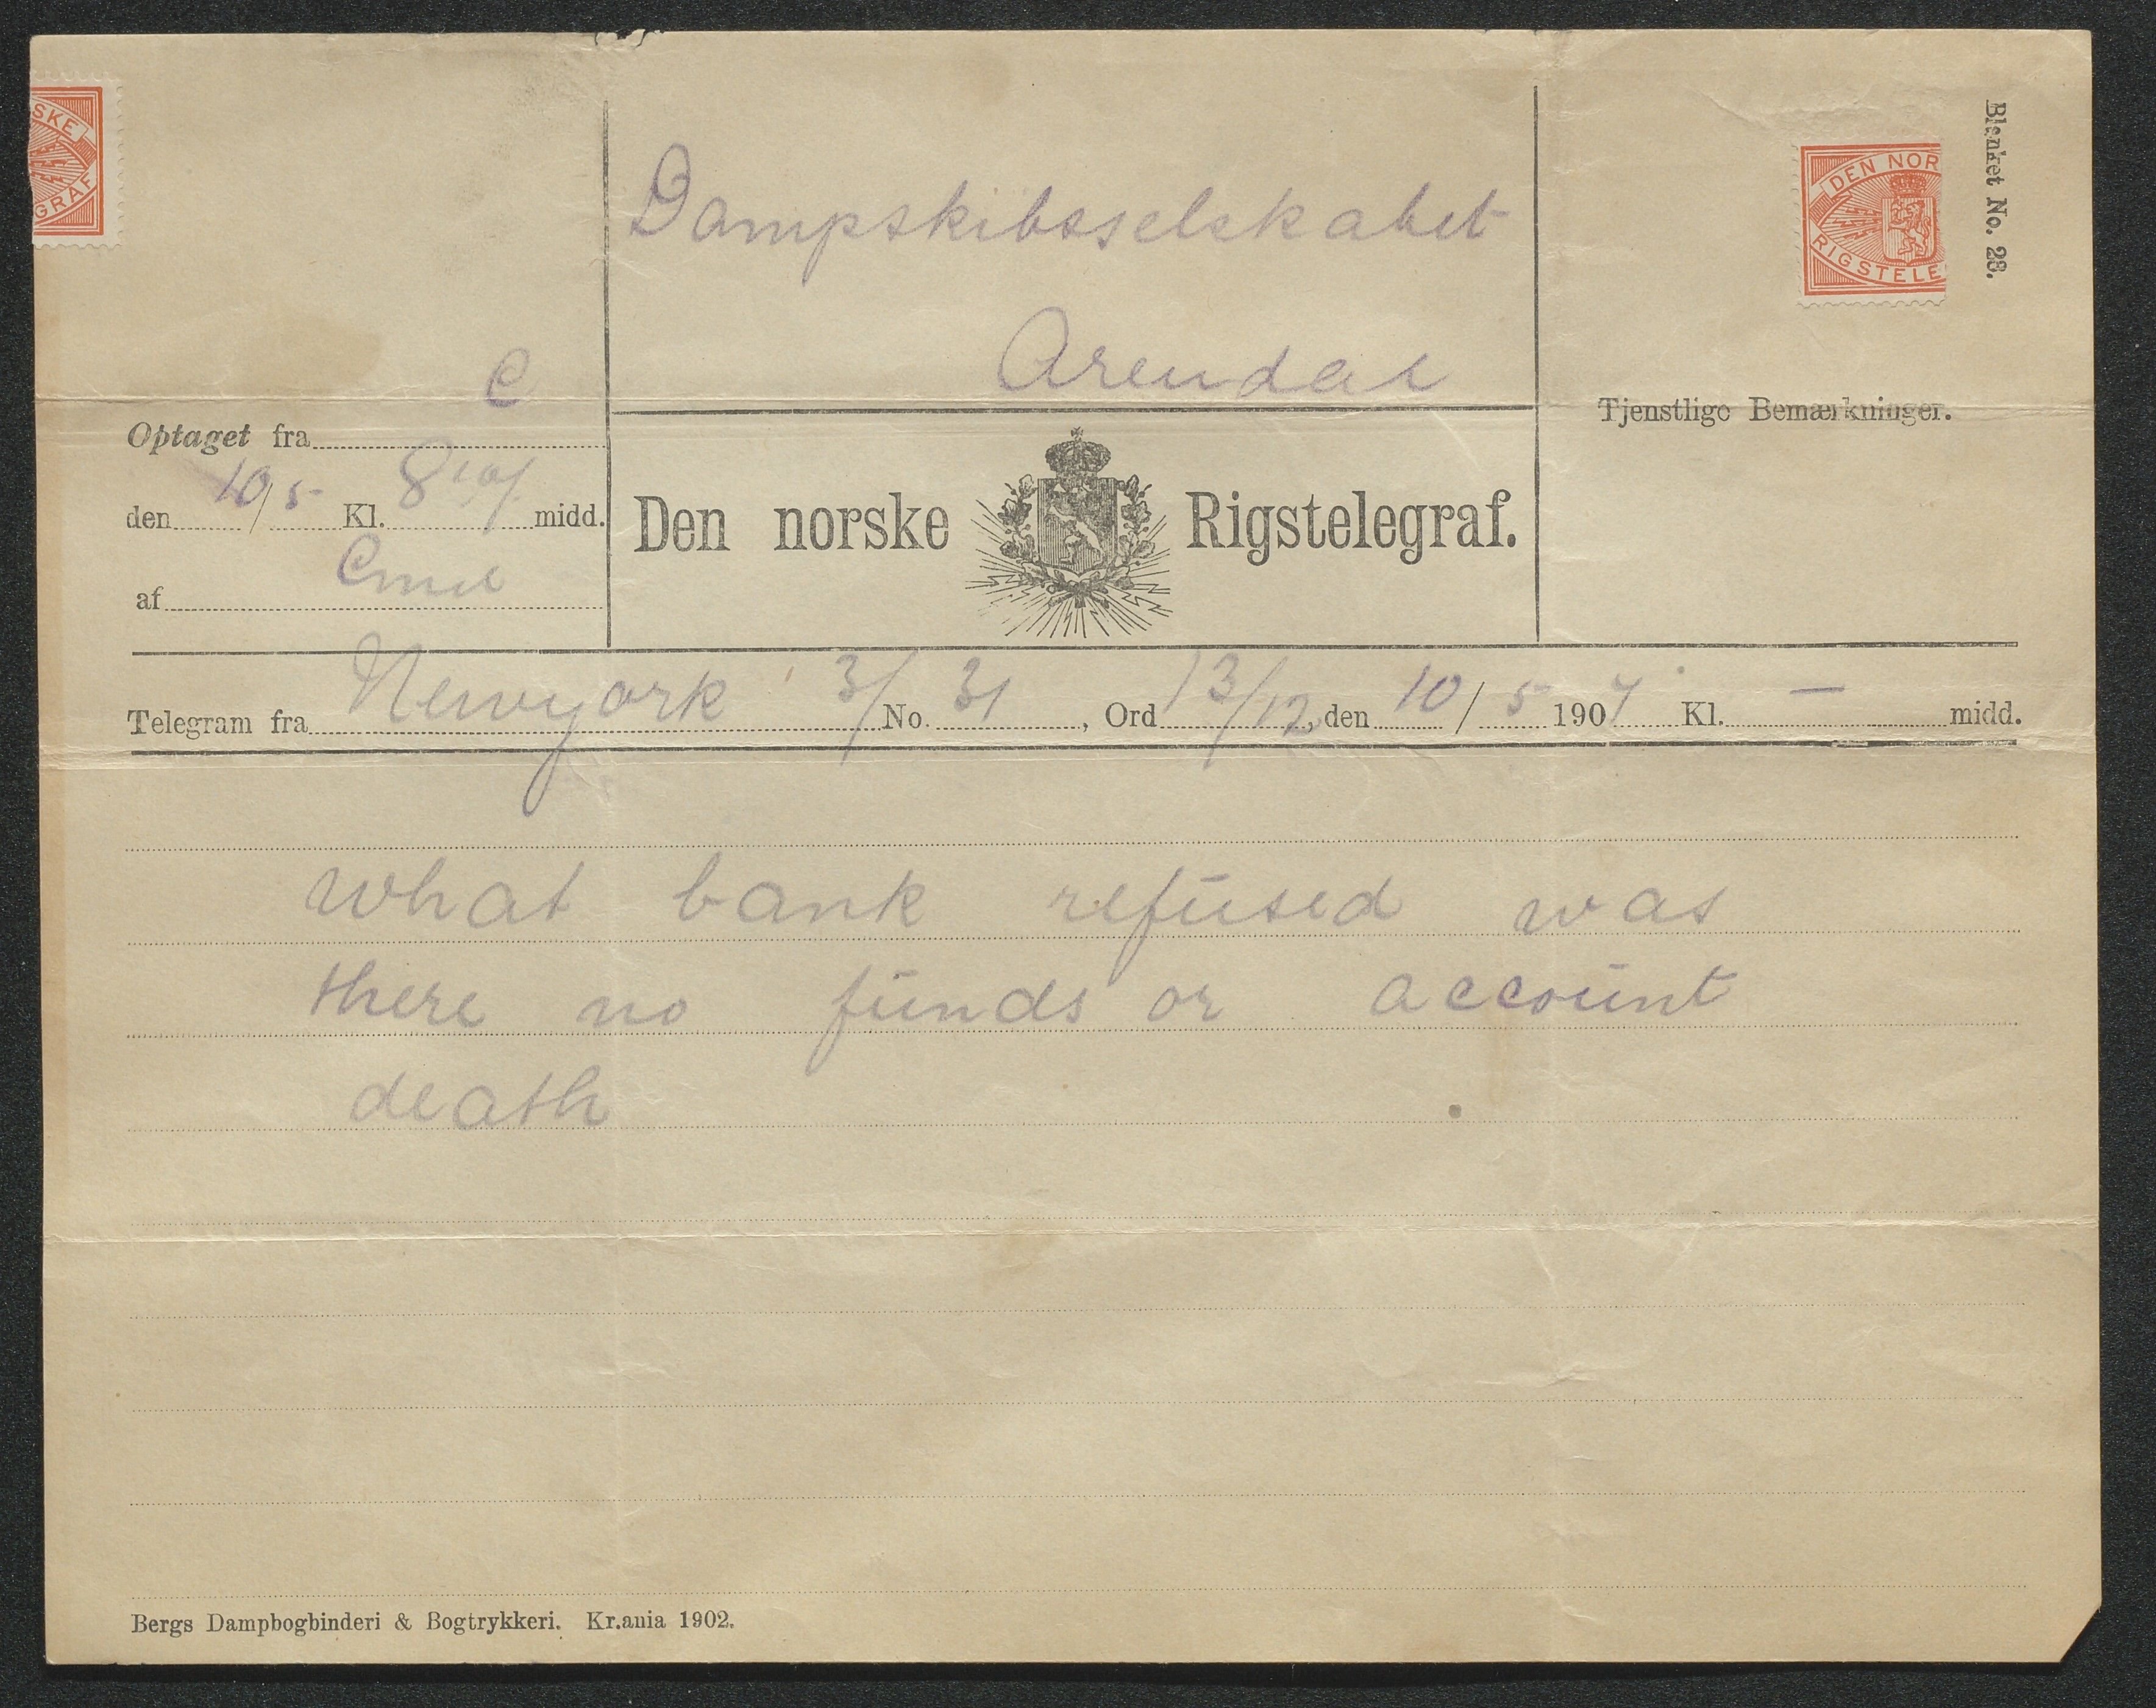 SKE
GRAF
Dampskibsselskabet
Arendal
DEN NOR
RIGSTELE
Blanket No. 28.
C
Optaget fra
den 10/5 Kl. 8 midd.
af
Den norske Rigstelegraf.
Tjenstlige Bemærkninger.
Telegram fra Newyork 3/ No. 31, Ord 13/12, den 10/5 190 Kl. — midd.
what bank refused was
there no funds or account
death
Bergs Dampbogbinderi & Bogtrykkeri. Kr.ania 1902.